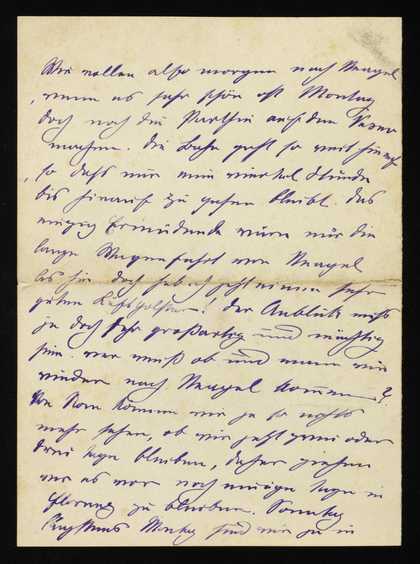 Wir wollen also morgen nach Neapel
, wenn es sehr schön ist Montag
doch noch die Parthie auf den Vesuv
machen. Die Bahn geht so weit hinauf
, so daß nur eine viertel Stunde
bis hinauf zu gehen bleibt. Das
einzig Ermüdende wäre nur die
lange Wagenfahrt von Neapel
bis hin doch hab ich jetzt einen sehr
guten! Der Anblick muß
ja doch sehr großartig und mächtig
sein. wer weiß ob und wann wir
wieder nach Neapel kommen?
Von Rom können wir ja so nichts
mehr sehen, ob wir jetzt zwei oder
drei Tage bleiben, daher ziehen
wir es vor noch einige Tage in
Florenz zu bleiben. Sonntag
sind wir ja in